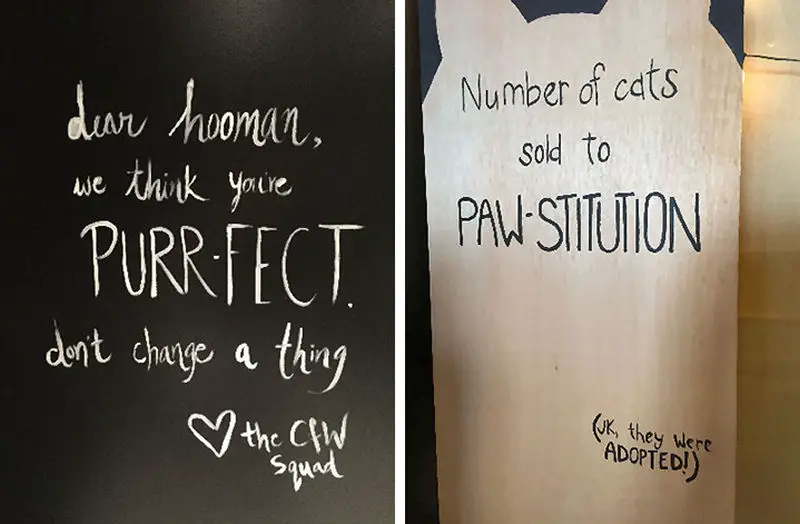 dear hooman,
we think you're
PURR-FECT.
don't change a thing
♡ the CfW
Squad
Number of cats
sold to
PAW-STITUTION
(JK, they were
ADOPTED!)